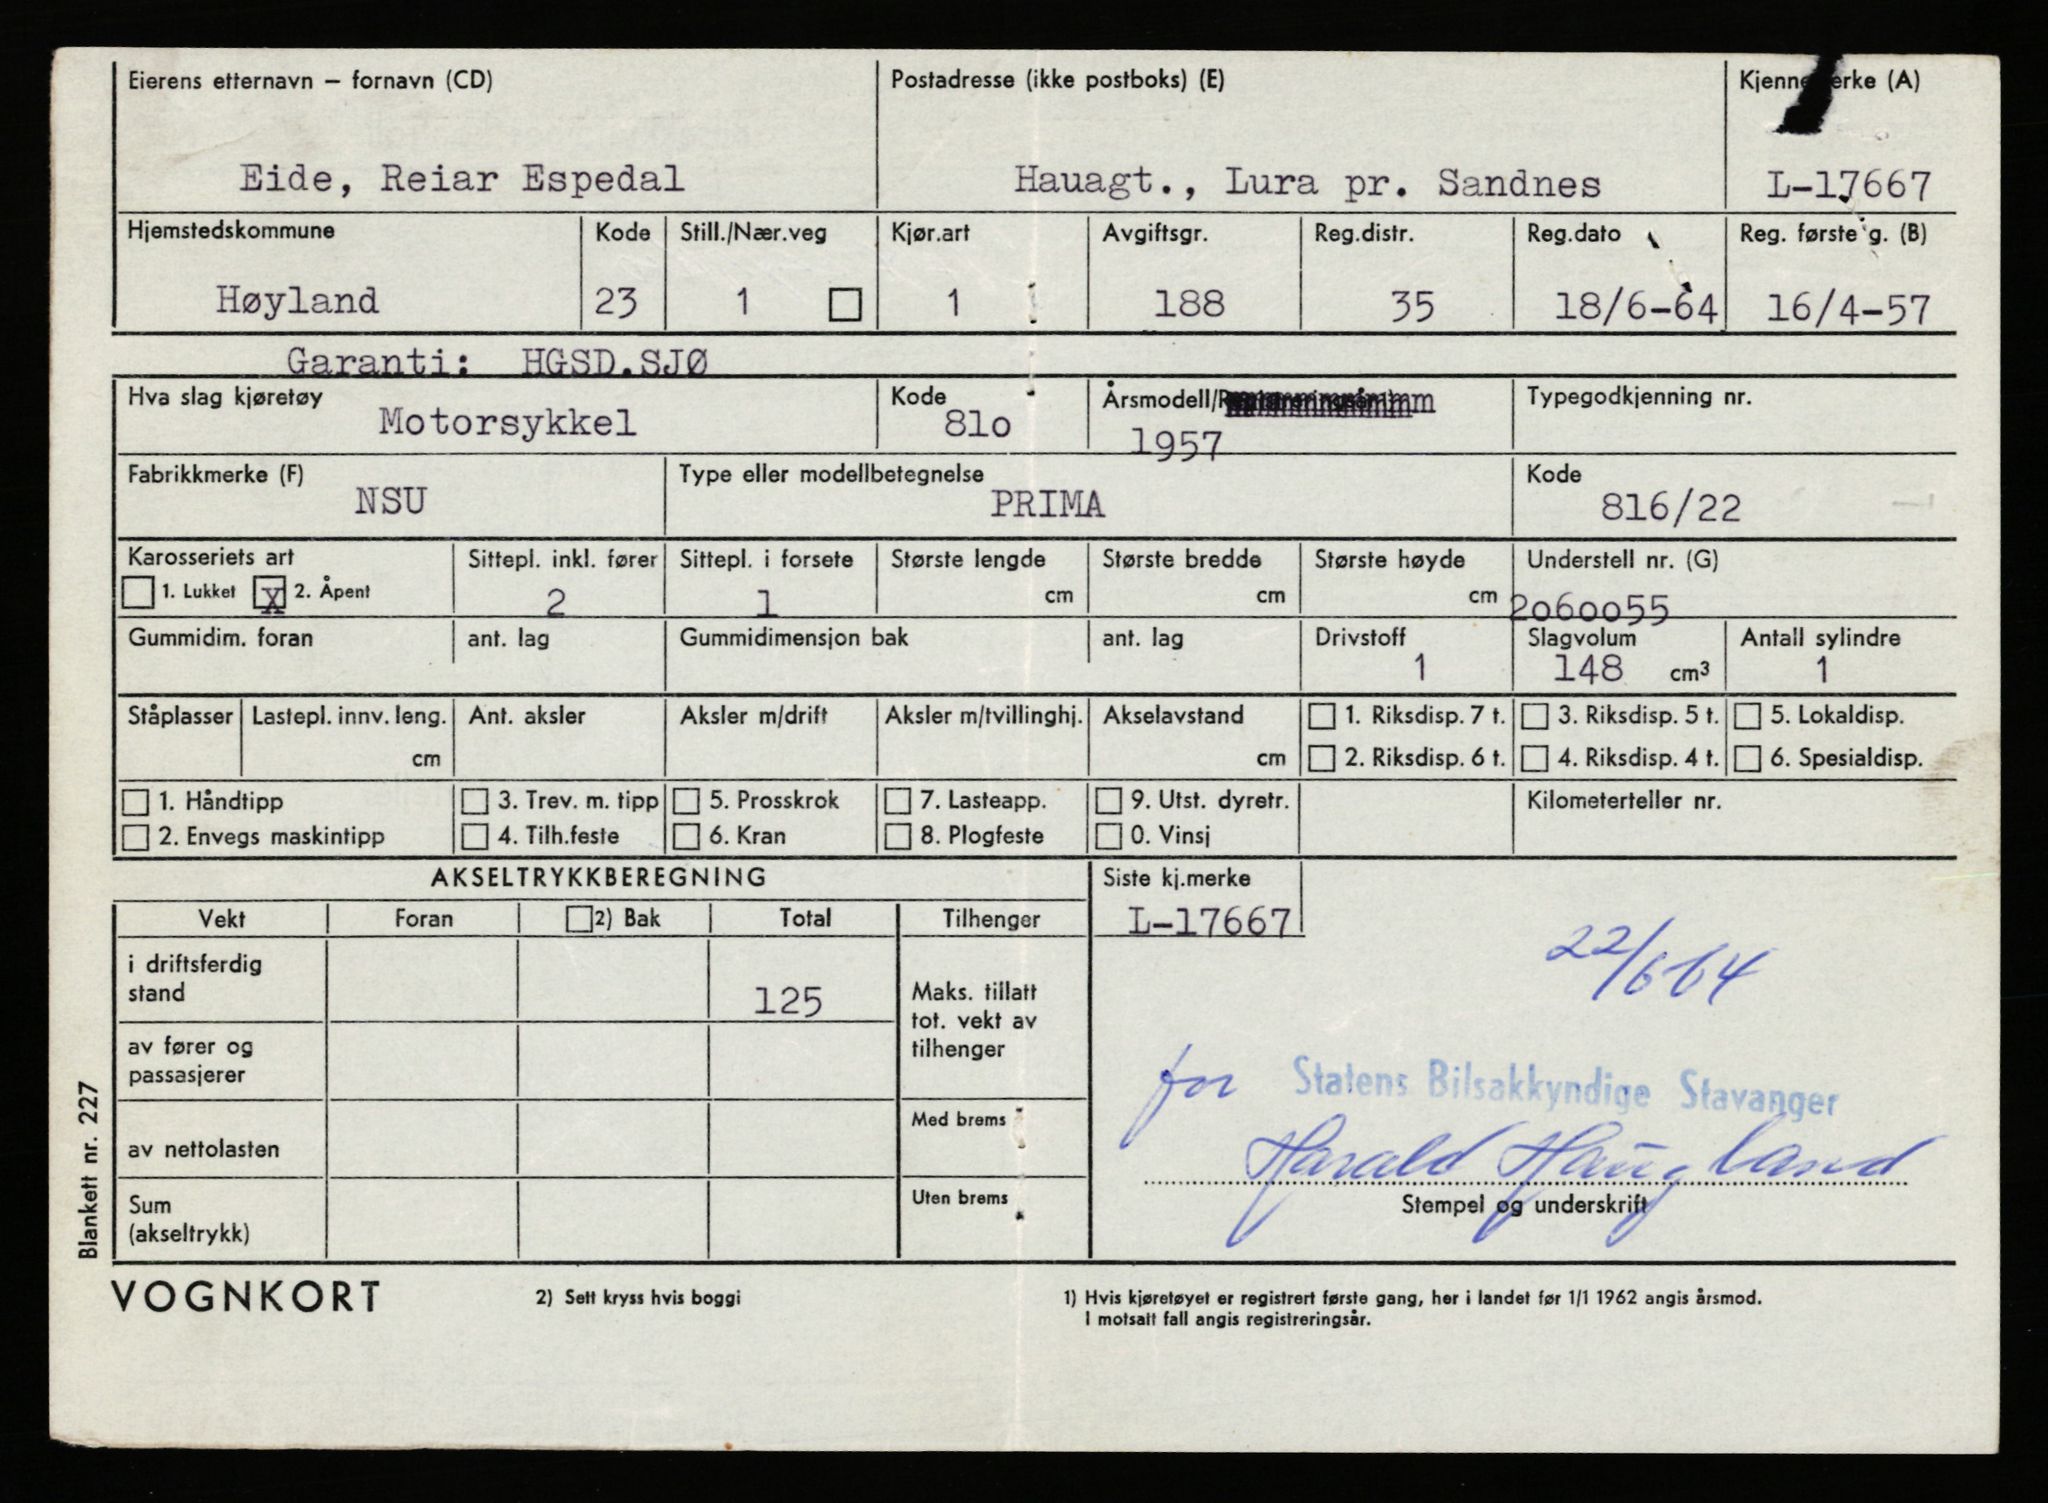 Eierens etternavn – fornavn (CD) Postadresse (ikke postboks) (E) Kjenne erke (A)
Eide, Reiar Espedal Hauagt., Lura pr. Sandnes L-17667
Hjemstedskommune Kode Still./Nær.veg Kjør.art Avgiftsgr. Reg.distr. Reg.dato Reg. første g. (B)
Høyland 23 1 1 188 35 18/6-64 16/4-57
Garanti: HGSD.SJØ
Hva slag kjøretøy Kode Årsmodell/ Typegodkjenning nr.
Motorsykkel 81o 1957
Fabrikkmerke (F) Type eller modellbetegnelse Kode
NSU PRIMA 816/22
Karosseriets art Sittepl. inkl. fører Sittepl. i forsete Største lengde Største bredde Største høyde Understell nr. (G)
1. Lukket X 2. Åpent 2 1 cm cm cm 2o6oo55
Gummidim. foran ant. lag Gummidimensjon bak ant. lag Drivstoff Slagvolum Antall sylindre
1 148 cm³ 1
Ståplasser Lastepl. innv. leng. Ant. aksler Aksler m/drift Aksler m/tvillinghj. Akselavstand 1. Riksdisp. 7 t. 3. Riksdisp. 5 t. 5. Lokaldisp.
cm cm 2. Riksdisp. 6 t. 4. Riksdisp. 4 t. 6. Spesialdisp.
1. Håndtipp 3. Trev. m. tipp 5. Prosskrok 7. Lasteapp. 9. Utst. dyretr. Kilometerteller nr.
2. Envegs maskintipp 4. Tilh.feste 6. Kran 8. Plogfeste 0. Vinsj
AKSELTRYKKBEREGNING Siste kj.merke
Vekt Foran 2) Bak Total Tilhenger L-17667
i driftsferdig
stand 125
Maks. tillatt
tot. vekt av
tilhenger
av fører og
passasjerer
Med brems
av nettolasten
Uten brems
Sum
(akseltrykk)
22/6 64
for Statens Bilsakkyndige Stavanger
Harald Haugland
Stempel og underskrift
Blankett nr. 227
VOGNKORT 2) Sett kryss hvis boggi 1) Hvis kjøretøyet er registrert første gang, her i landet før 1/1 1962 angis årsmod.
I motsatt fall angis registreringsår.